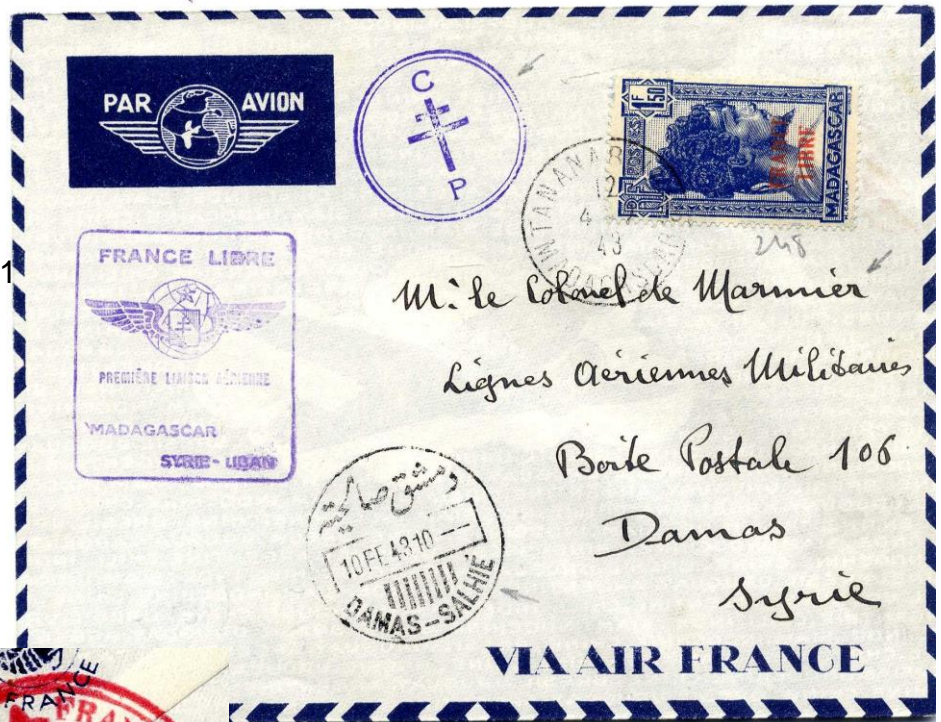 PAR AVION
C
P
1F50
POSTES
RF
FRANCE
LIBRE
MADAGASCAR
TANANARIVE
12
4
43
MADAGASCAR
248
1
FRANCE LIBRE
PREMIÈRE LIAISON AÉRIENNE
MADAGASCAR
SYRIE-LIBAN
Mr le Colonel de Marmier
Lignes Aériennes Militaires
Boite Postale 106
Damas
Syrie
دمشق صالحية
10 FE 43 10
DAMAS-SALHIE
VIA AIR FRANCE
FRANCE
FRAN